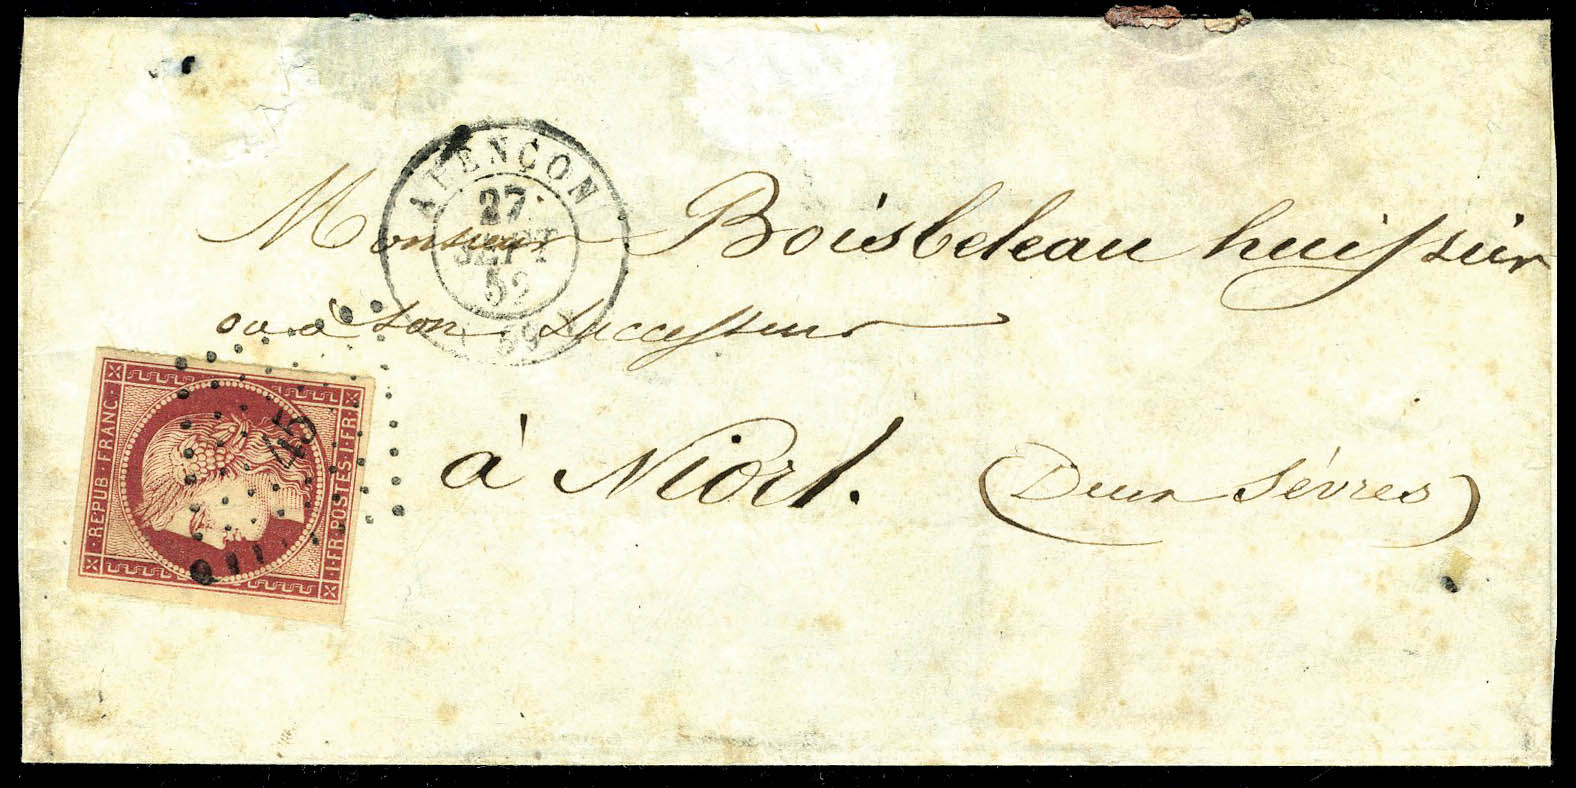 ALENÇON
27
SEPT
52
(59)
Monsieur Boisbeleau huissier
ou à son Successeur
à Niort. (Deux Sèvres)
REPUB·FRANC·
1·FR·POSTES·1·FR
45